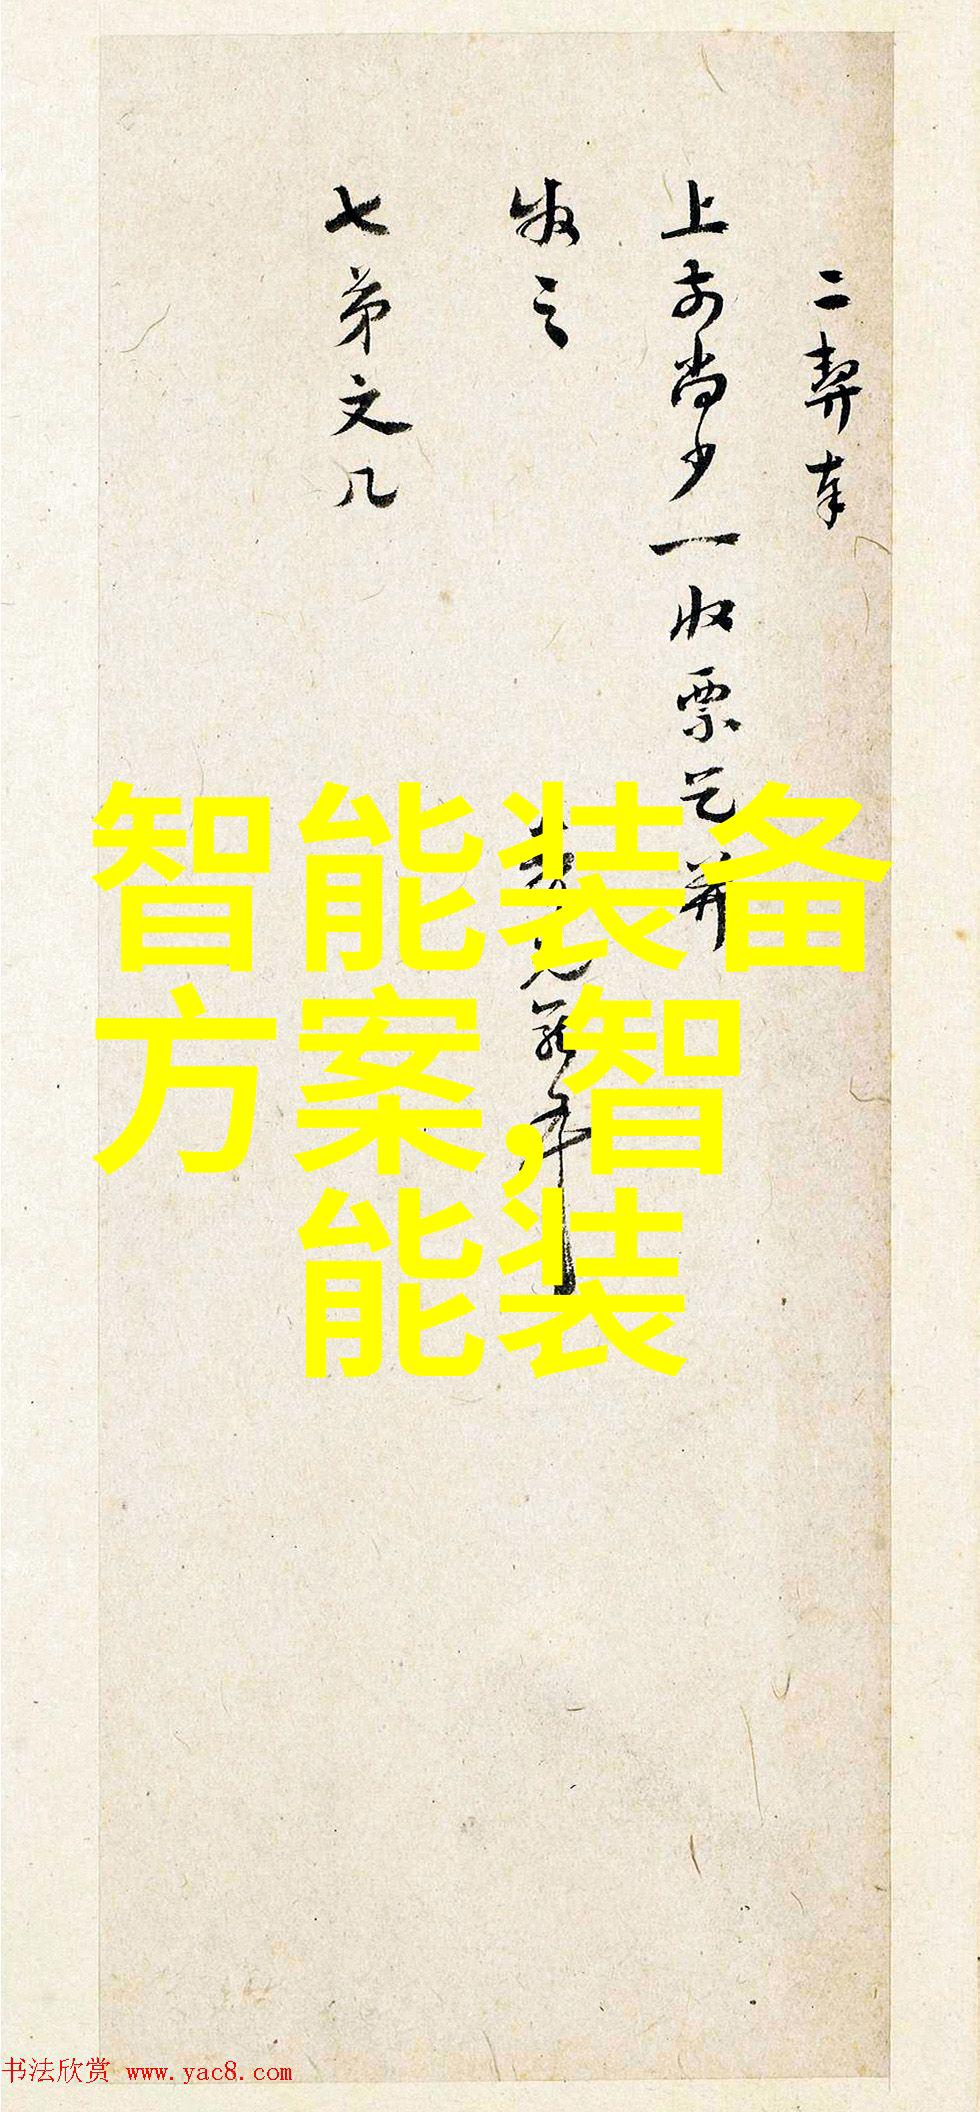 二契奉
上前尚少一收票乞并
收之
七弟文几
智能装备
方案,智
能装
书法欣赏 www.yac8.com